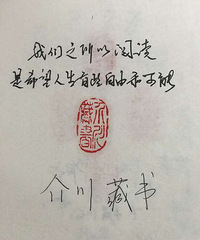 我们之所以阅读
是希望人生有些自由和可能
介川藏书
介川藏书